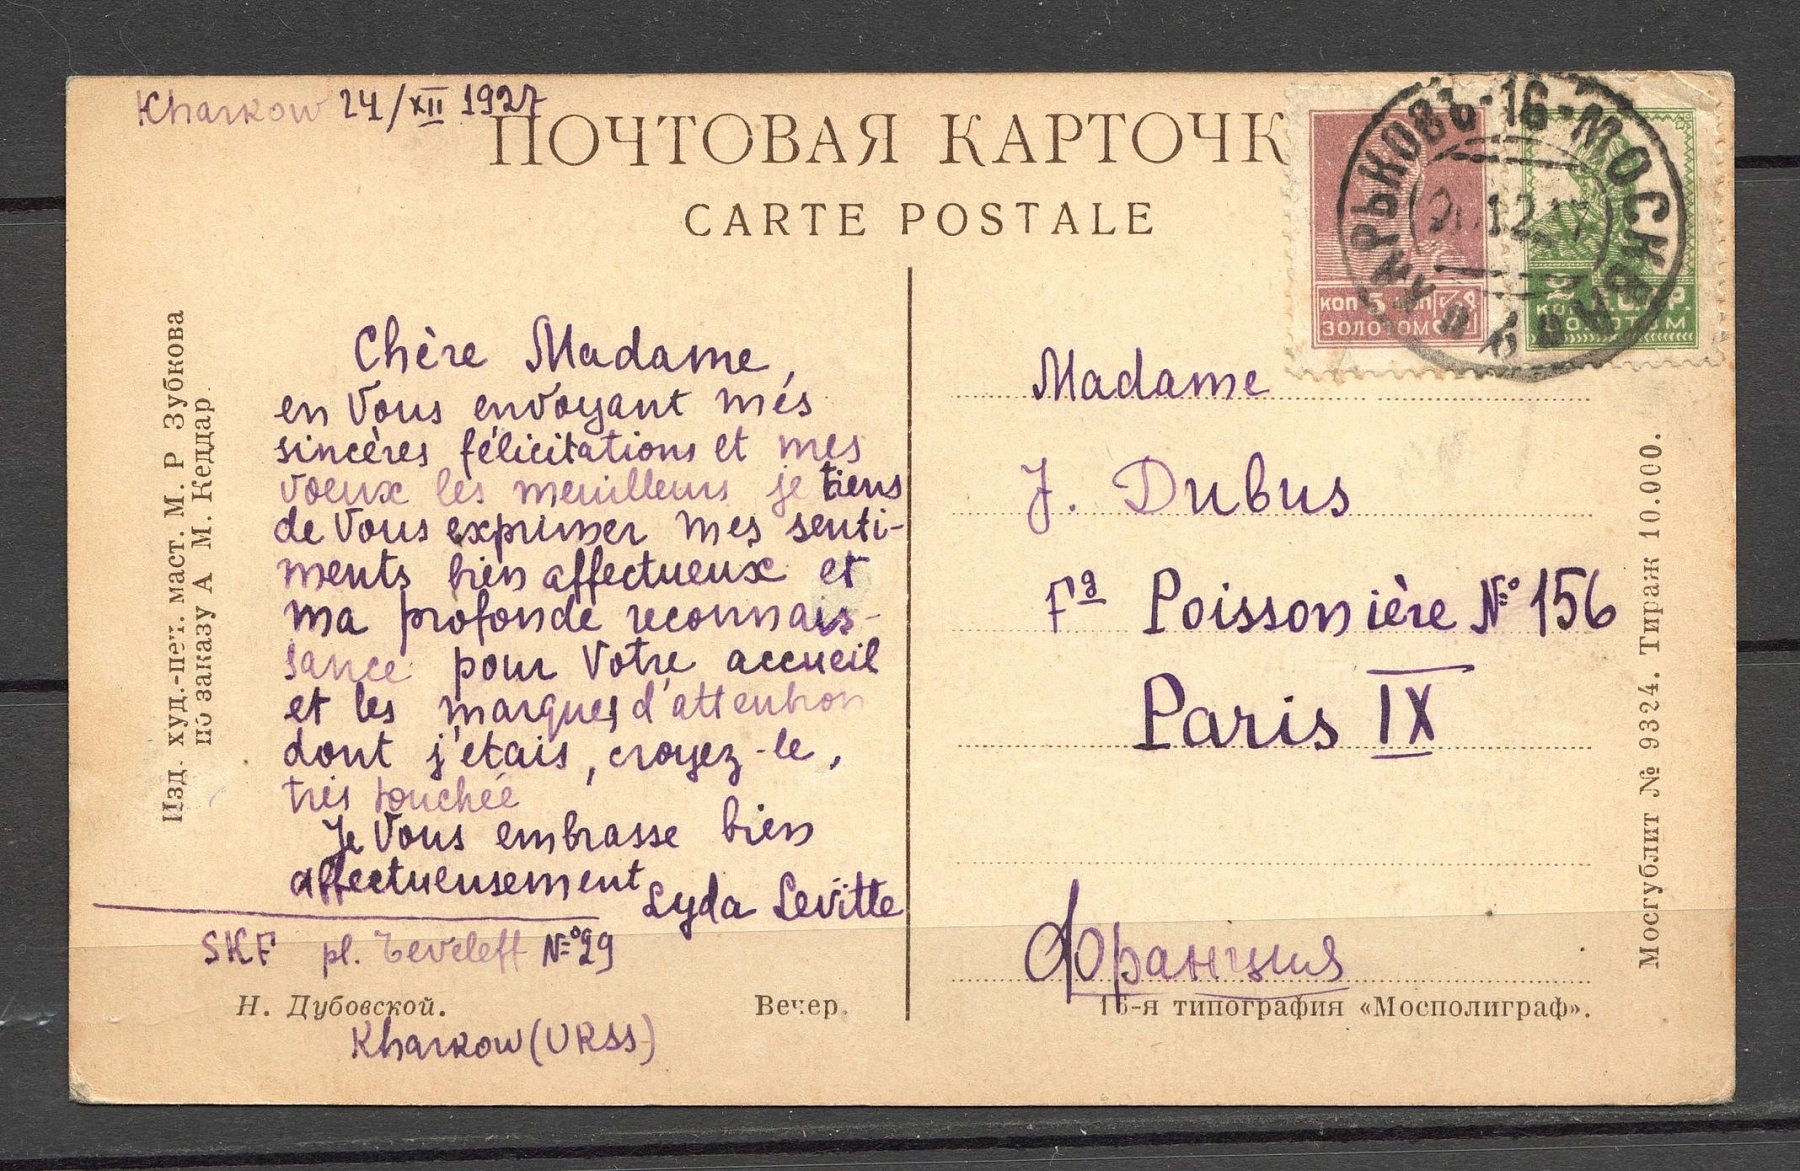 Kharkow 24/XII 1927
ПОЧТОВАЯ КАРТОЧК
CARTE POSTALE
ХАРЬКОВЪ-16-МОСКВА
12
коп 5 коп
ЗОЛОТОМ
2
ЗОЛОТОМ
Chère Madame,
en Vous envoyant mes
sincères félicitations et mes
voeux les meuilleurs je tiens
de Vous exprimer mes senti-
ments bien affectueux et
ma profonde reconnais-
sance pour Votre accueil
et les marques d'attention
dont j'etais, croyez-le,
très touchée
Je Vous embrasse bien
affectueusement
Lyda Levitte
SKF pl. Teveleff № 29
Kharkow (URSS)
Madame
J. Dubus
Fg Poissonière № 156
Paris IX
Франция
Н. Дубовской.
Вечер.
16-я типография «Мосполиграф».
Изд. худ.-печ. маст. М. Р Зубкова
по заказу А М. Кеддар.
Мосгублит № 9324. Тираж 10.000.